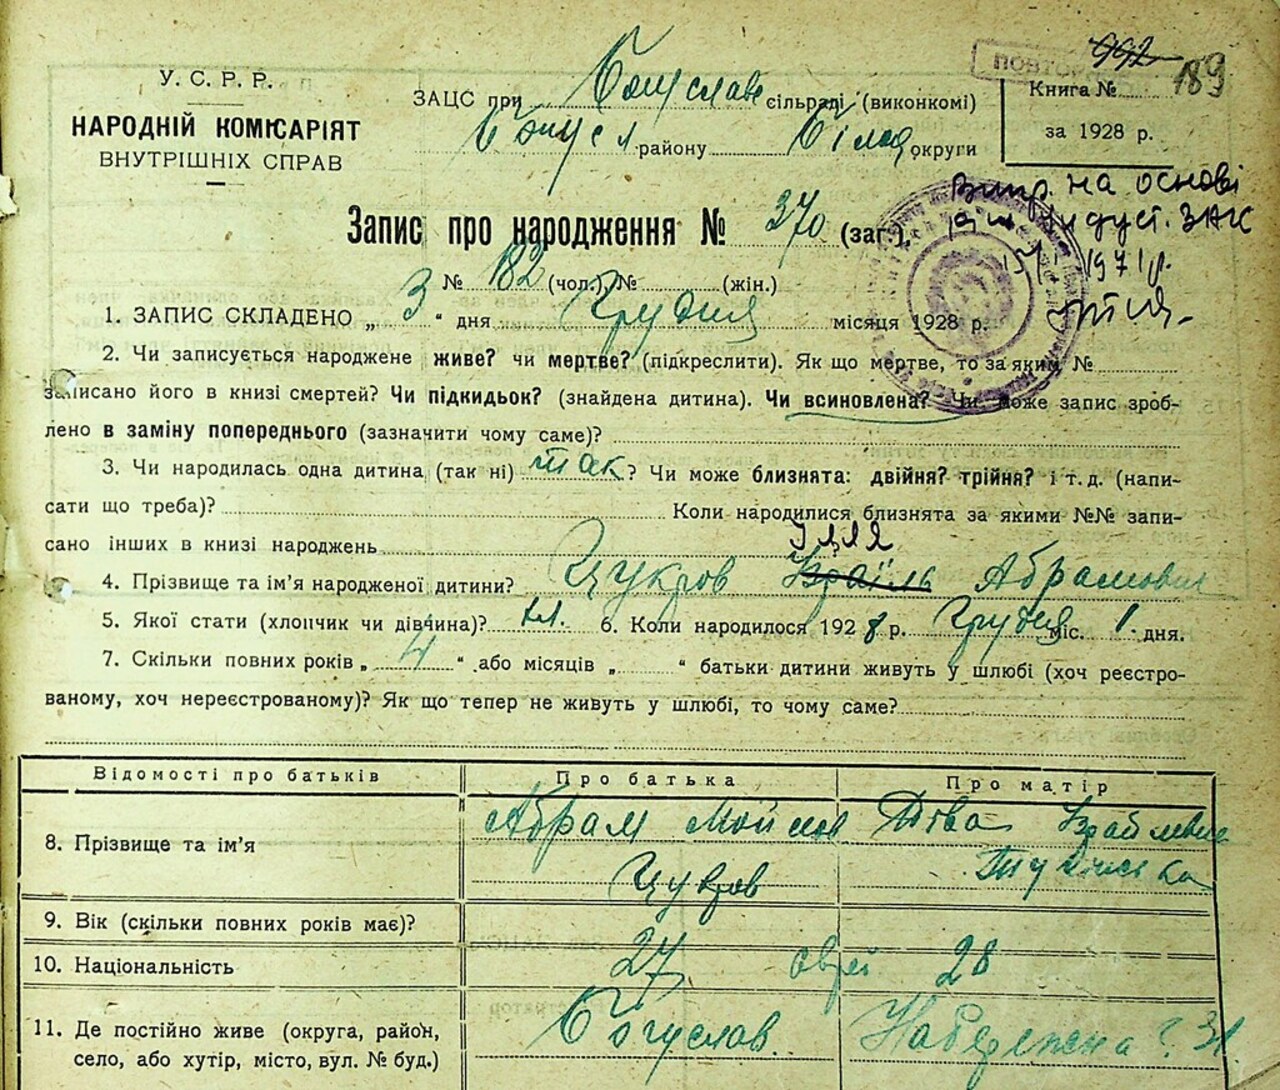 У. С. Р. Р.
НАРОДНІЙ КОМІСАРІЯТ
ВНУТРІШНІХ СПРАВ
ПОВТОР
992 189
Книга №
за 1928 р.
ЗАЦС при Богуславс сільраді (виконкомі)
Богусл району Білоц округи
Випр. на основі
індуст. ЗАГС
1971 р.
Запис про народження № 370 (заг.),
№ 182 (чол.), № (жін.)
1. ЗАПИС СКЛАДЕНО „ 3 “ дня Грудня місяця 1928 р.
2. Чи записується народжене живе? чи мертве? (підкреслити). Як що мертве, то за яким №
записано його в книзі смертей? Чи підкидьок? (знайдена дитина). Чи всиновлена? Чи може запис зроб-
лено в заміну попереднього (зазначити чому саме)?
3. Чи народилась одна дитина (так ні) так ? Чи може близнята: двійня? трійня? і т. д. (напи-
сати що треба)? Коли народилися близнята за якими №№ запи-
сано інших в книзі народжень
Ілля
4. Прізвище та ім’я народженої дитини? Цукров Ізраїль Абрамович
5. Якої стати (хлопчик чи дівчина)? хл. 6. Коли народилось 1928 р. Грудня міс. 1. дня.
7. Скільки повних років „ 4 “ або місяців „ “ батьки дитини живуть у шлюбі (хоч реєстро-
ваному, хоч нереєстрованому)? Як що тепер не живуть у шлюбі, то чому саме?
Відомості про батьків Про батька Про матір
8. Прізвище та ім’я Абрам Мойсеов Цукров
9. Вік (скільки повних років має)?
10. Національність 27 єврей 28
11. Де постійно живе (округа, район,
село, або хутір, місто, вул. № буд.) Богуслав. Набережна 31